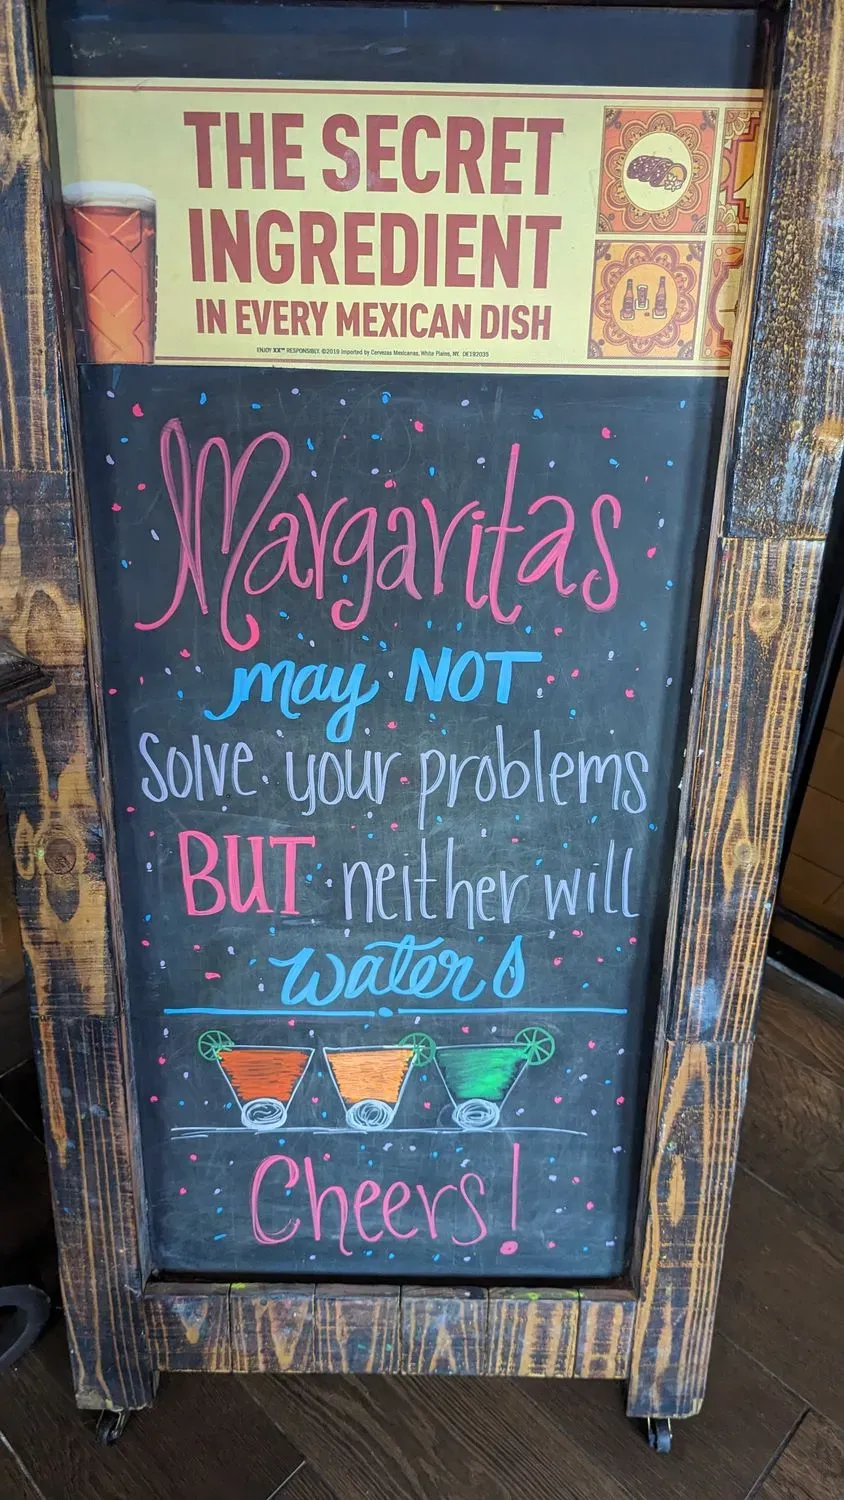 THE SECRET
INGREDIENT
IN EVERY MEXICAN DISH
ENJOY XX™ RESPONSIBLY. ©2019 Imported by Cervezas Mexicanas, White Plains, NY. DE192035
Margaritas
may NOT
solve your problems
BUT neither will
water's
Cheers!